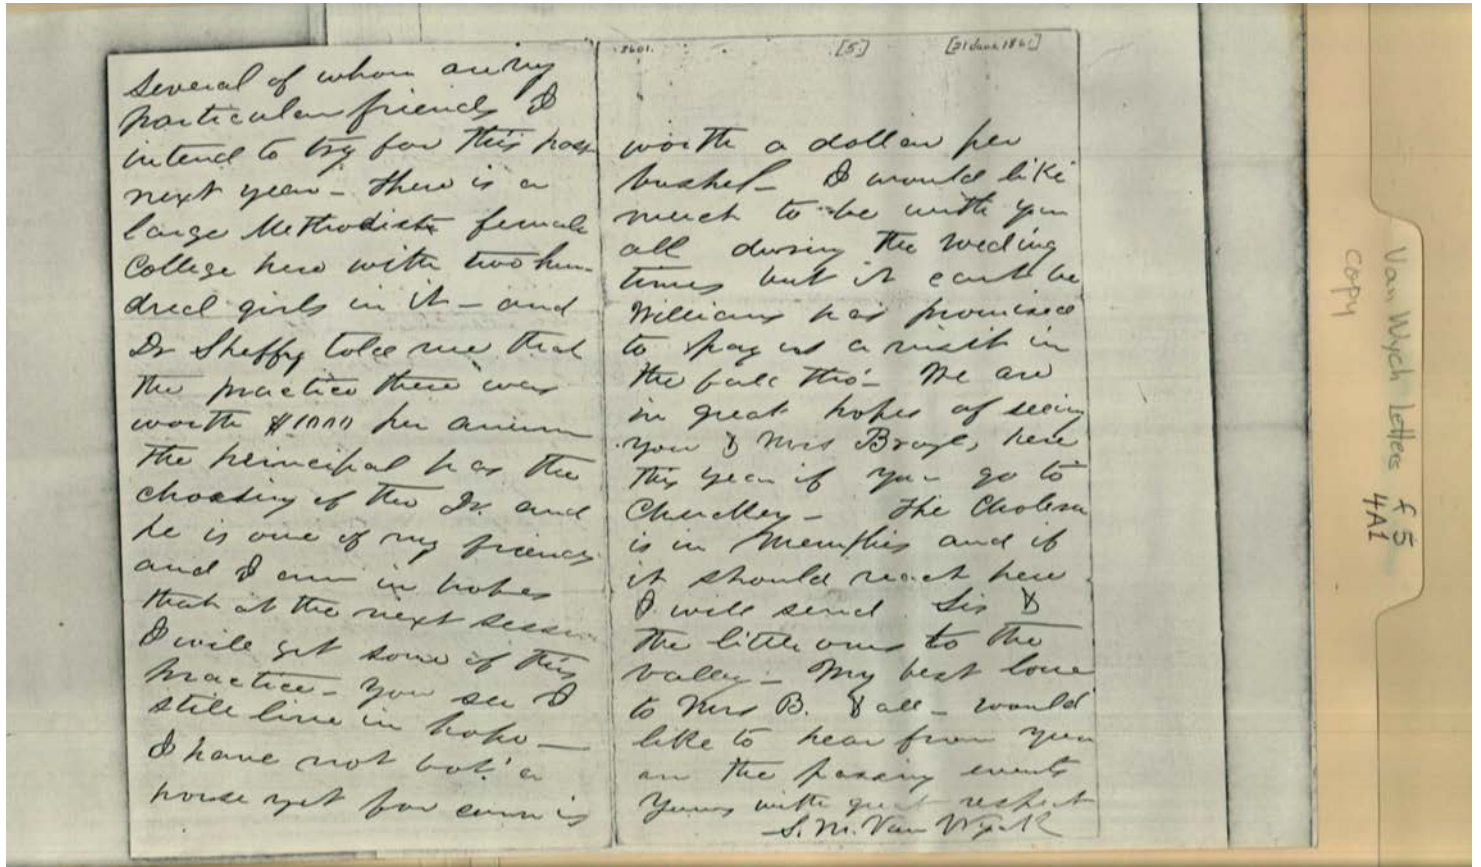 several of whom are my
particular friends I
intend to try for this post
next year – There is a
large Methodist female
College here with two hun-
dred girls in it – and
Dr Sheffy told me that
the practice there was
worth $1000 per annum
the principal has the
choosing of the Dr. and
he is one of my friends
and I am in hopes
that at the next session
I will get some of this
practice – You see I
still live in hope –
I have not bot' a
horse yet for corn is
8601. [5.] [21 June 1861]
worth a dollar per
bushel – I would like
much to be with you
all during the weding
times but it cant be
Williams has promised
to pay us a visit in
the fall tho' – We are
in great hopes of seeing
you & Mrs here
this year if you go to
The Cholera
is in Memphis and if
it should reach here
I will send Sis &
the little ones to the
valley – My best love
to Mrs B. & all – would
like to hear from you
on the passing events
Yours with great respect
S. M. Van Wyck
Van Wych Letters f 5
4A1
COPY